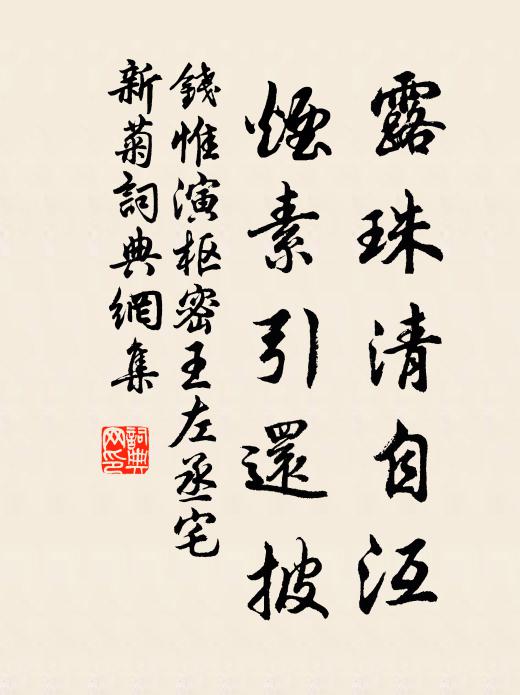 露珠清自沍
煙素引還披
錢惟演枢密王左丞宅
新菊詞典網集
詞典
网印